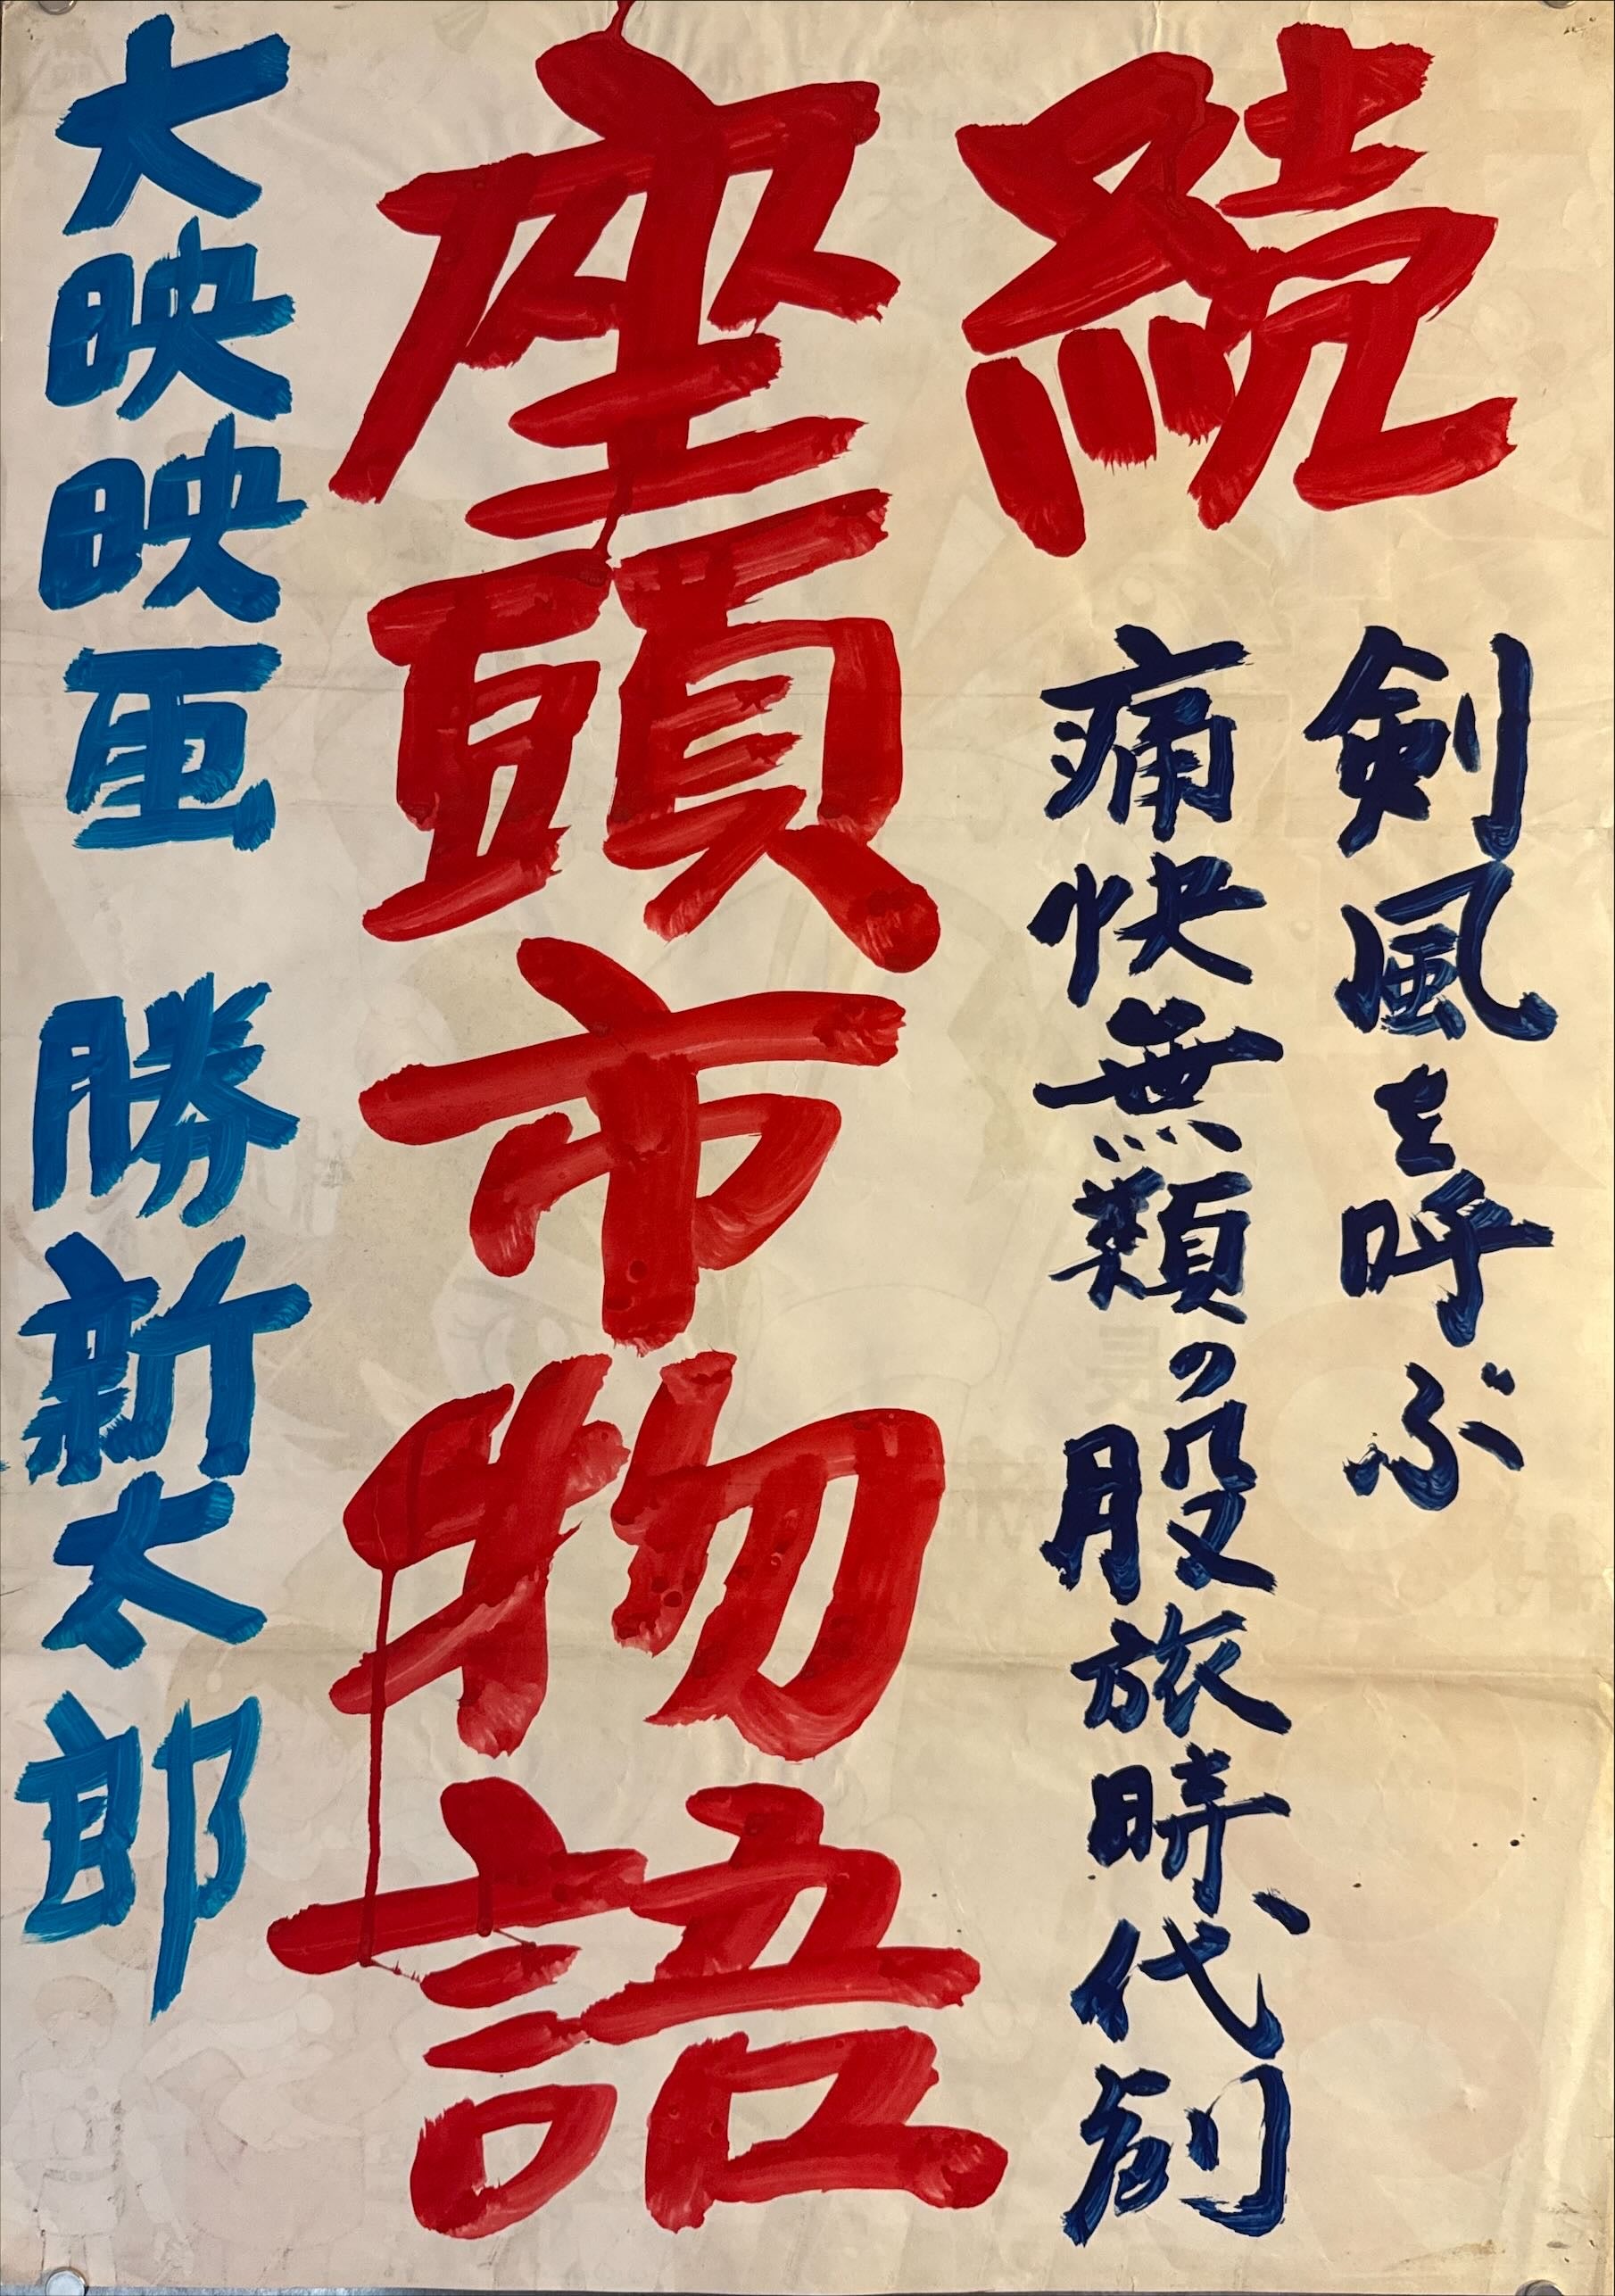 続
剣風を呼ぶ
痛快無類の股旅時代劇
座頭市物語
大映映画 勝新太郎